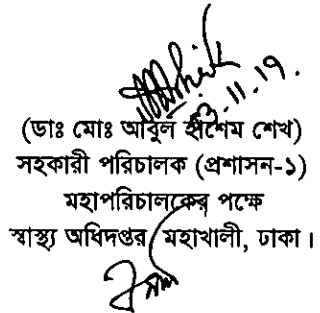 03.11.19.
(ডাঃ মোঃ আবুল হাশেম শেখ)
সহকারী পরিচালক (প্রশাসন-১)
মহাপরিচালকের পক্ষে
স্বাস্থ্য অধিদপ্তর, মহাখালী, ঢাকা।